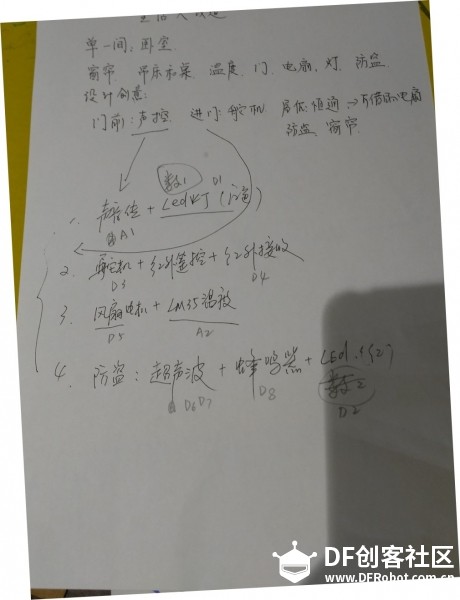 单一间：卧室
窗帘 床 温度 门 电扇 灯 防盗
设计创意：
门前：声控 进门：舵机 居住：恒温 电扇
防盗 窗帘
数1 D1
1. 声音传 + Led灯
A1
2. 舵机 + 红外遥控 + 红外接收
D3 D4
3. 风扇电机 + LM35温敏
D5 A2
4. 防盗：超声波 + 蜂鸣器 + LED
D6D7 D8 数2
D2
DF创客社区
www.DFRobot.com.cn